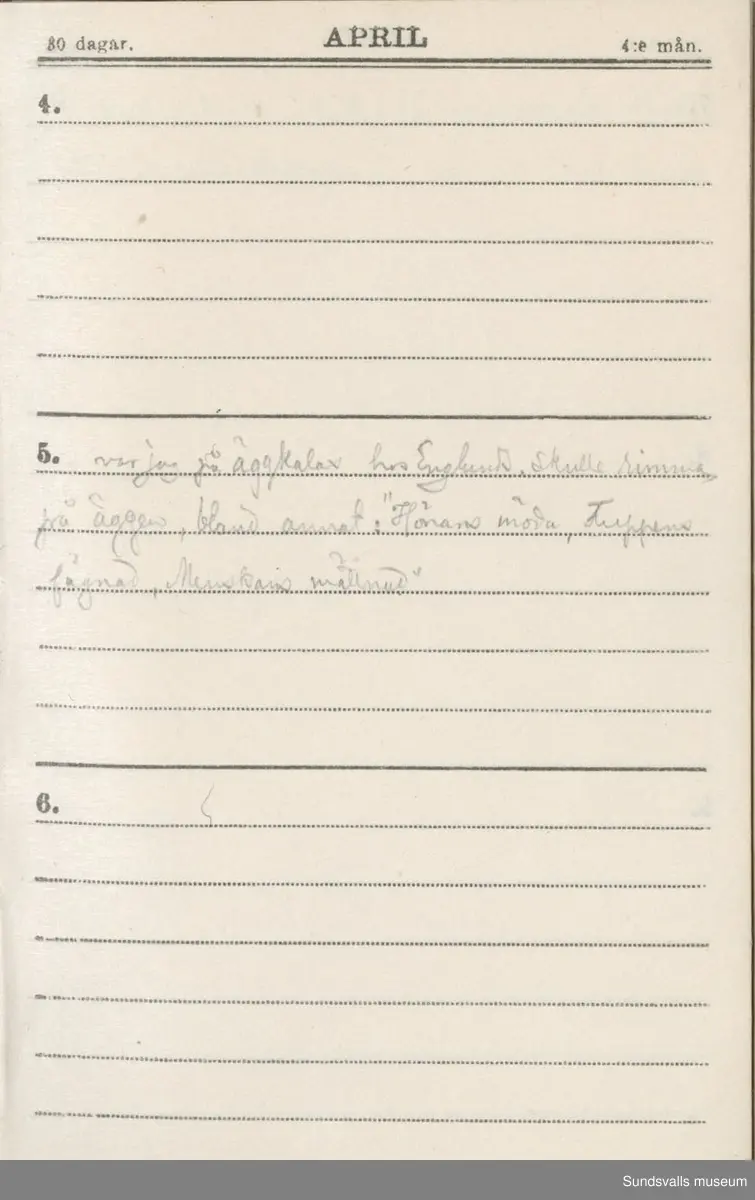 30 dagar. APRIL 4:e mån.
4.
5. var jag på äggkalas hos Englunds. Skulle rimma
på äggen, bland annat: "Hönans möda, Tuppens
fägnad, Menskans mättnad"
6.
Sundsvalls museum